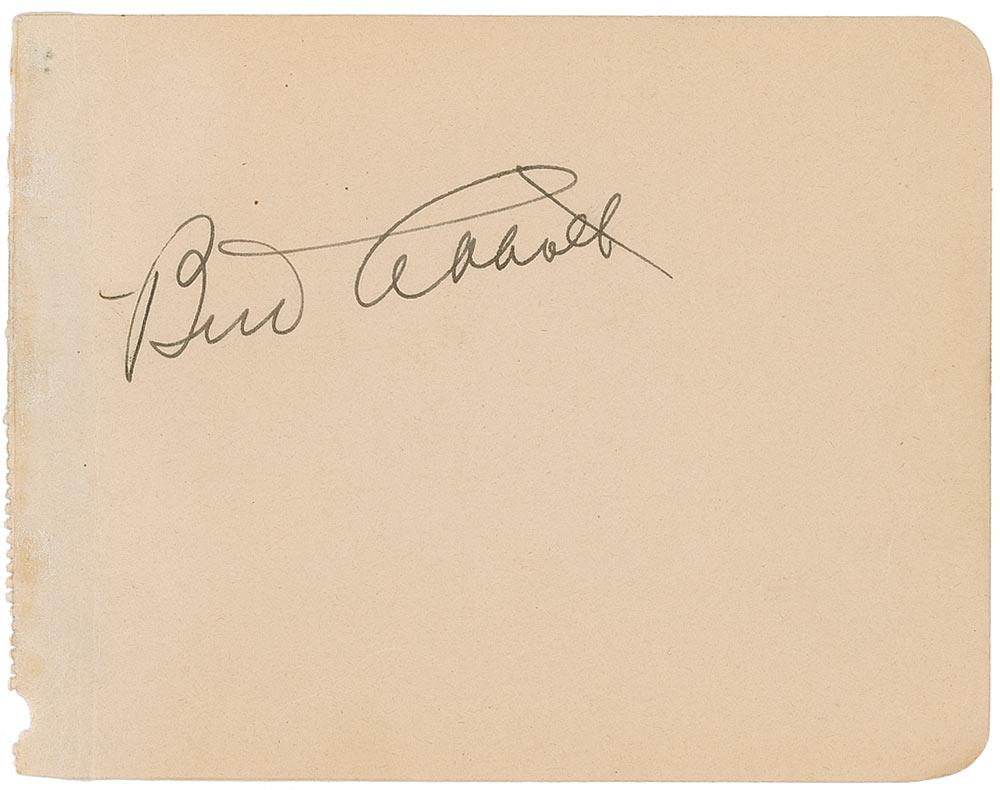 Bud Abbott